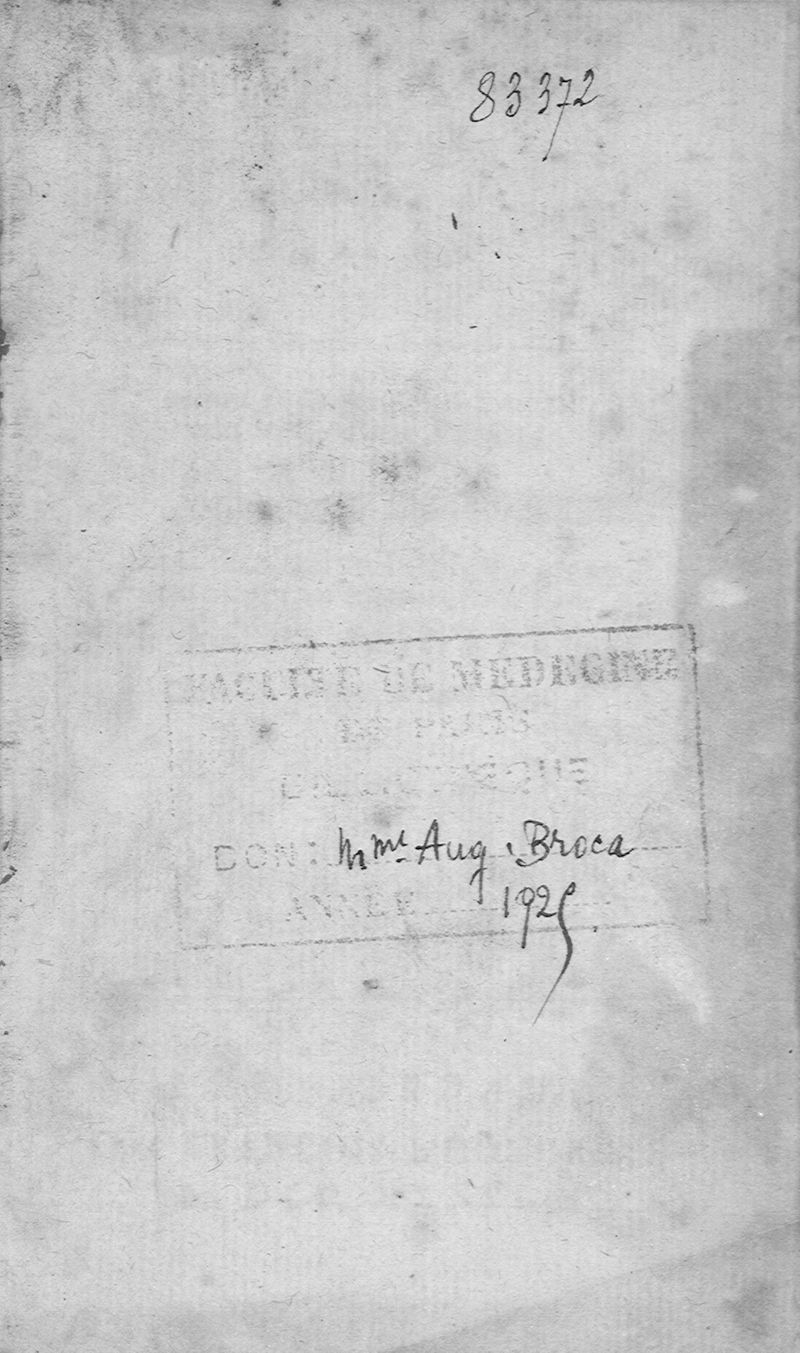 83372
FACULTÉ DE MÉDECINE
DE PARIS
BIBLIOTHÈQUE
DON: Mme Aug. Broca
ANNÉE 1925.